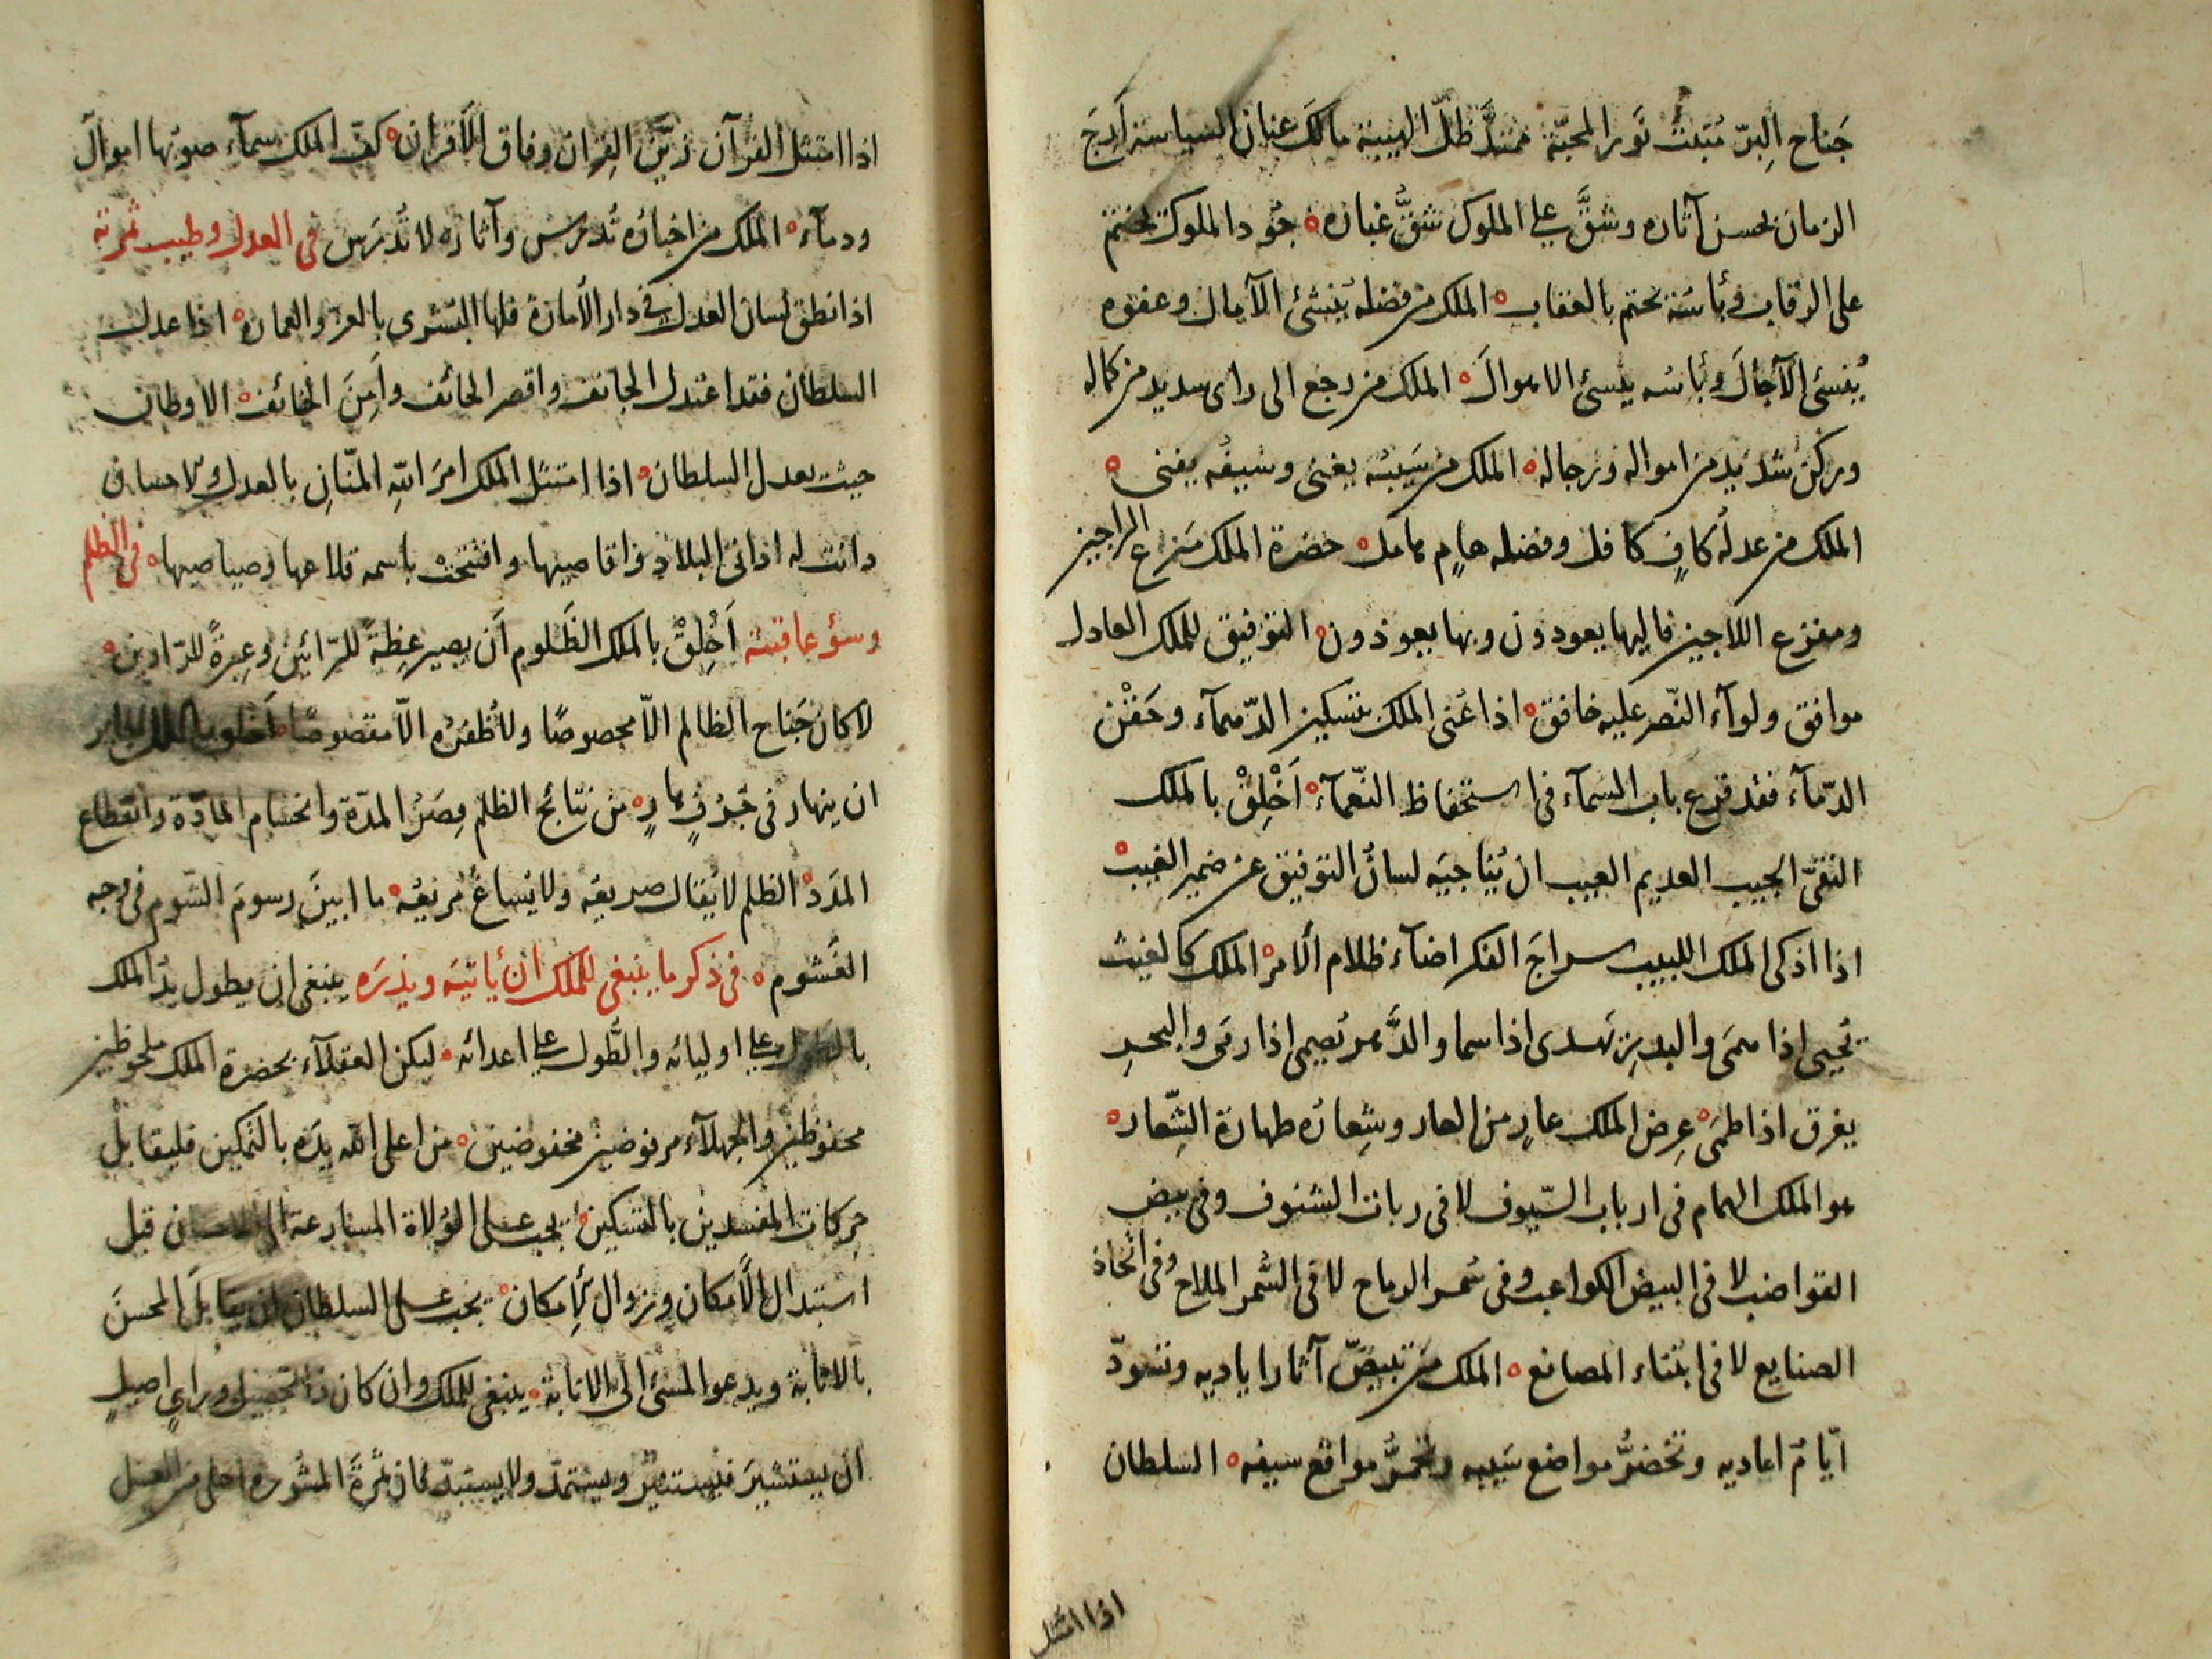 جَناح البِرّ مُثبَت نَور المحبّة ممتدَّ ظلّ الهيبة مالك عنان السياسة اَرِجَ
الزمان بحسن آثاره وشقَّ على الملوك شقُّ غباره ه جُود الملوك يختم
على الرقاب وبأسُه يحتم بالعقاب ه الملك من فضله يُنشئ الآمال وعفوه
يُنسئ الآجالَ وبأسُه ينسئ الاموالَ ه الملك من رجع الى راى سديد من كماله
وركن شديد من امواله ورجاله ه الملك من سَيبُه يغنى وسيفُه يفنى ه
الملك من عدله كافٍ كافل وفضله هامٍ هامل ه حضرة الملك مَنزع الراجين
ومفزع اللاجين فاليها يعودون وبها يعوذون ه التوفيق للملك العادل
موافق ولوآء النّصر عليه خافق ه اذا عُنى الملك بتسكين الدّهمآء وحَقْن
الدّمآء فقد قرع باب السمآء فى استحفاظ النّعمآء ه اَخْلِقْ بالملك
النقىّ الجيب العديم العيب ان يُناجيَه لسانُ التوفيق عن ضمير الغيب ه
اذا اذكى الملك اللبيب سراجَ الفكر اضآء ظلام الأمر ه الملك كالغيث
يُحيى اذا همَى والبدرِ يَهدى اذا سما والدَّهر يُصمى اذا رمَى والبحرِ
يغرق اذا طمَى ه عِرض الملك عارٍ من العار وشِعارُه طهارة الشِّعار ه
هو الملك الهمام فى ارباب السّيوف لا فى ربات الشنوف وفى بيض
القواضب لا فى البيض الكواعب وفى سُمر الرماح لا فى السُّمر الملاح وفى اتّخاذ
الصنايع لا فى ابتناء المصانع ه الملك من تبيضّ آثار اياديه وتسودّ
ايّامُ اعاديه وتخضرُّ مواضع سَيبه وتحمرُّ مواقع سيفه ه السلطان
اذا امتثل
اذا امتثل القرآن زيّنَ القِران وفاق الأقران ه كفّ الملك سمآء صوبُها اموالَ
ودمآء ه الملك من اخبارُه تُدرَس وآثاره لا تُدرَس فى العدل وطيب ثمرته
اذا نطق لسان العدل فى دار الأمارة فلها البُشرى بالعزّ والعمارة ه اذا عدل
السلطان فقد اعتدل الجانف واقصر الحائف واَمِنَ الخائف ه الاوطان
حيث يعدل السلطان ه اذا امتثل الملك امرَ اللّه المنّانِ بالعدل والاحسان
دانت له ادانى البلاد واقاصيها وافتتحت باسمه قلاعها وصياصيها ه فى الظلم
وسؤ عاقبته اَخْلِقْ بالملك الظَلوم اَن يصير عِظةً للرّائين وعِبرةً للرّاوين ه
لا كان جَناح الظالم الاّ محصوصًا ولا ظُفرُه الاّ مقصوصًا ه اخلق بالملك الجاير
ان ينهار فى جُرُفٍ هارٍ ه من نتائج الظلم قِصَرُ المدّة وانحسام المادّة وانقطاع
المدَد ه الظلم لا يُقال صريعُه ولا يُساغُ مُريعُه ه ما ابينَ رسومَ الشّوم فى وجه
الغَشوم ه فى ذكر ما ينبغى للملك ان يأتيَه ويذرَه ينبغى ان يطول يدُ الملك
بالطَول على اوليائه والطُّول على اعدائه ه ليكن العقلآء بحضرة الملك ملحوظين
محفوظين والجهلآء مرفوضين مخفوضين ه من اعلى اللّه يدَه بالتمكين فليقابل
حركات المفسدين بالتسكين ه يجب على الوُلاة المسارعة الى الاحسان قبل
استبدال الأمكان وزوال الإمكان ه يجب على السلطان ان يقابلَ المحسنَ
بالاثابة ويدعو المسئ الى الانابة ه ينبغى للملك وان كان ذا تحصيل وراىٍ اصيلٍ
ان يستشيرَ فيستنير ويستمدّ ولا يستبدّ فان ثمرةَ المشُورة احلى من العسل